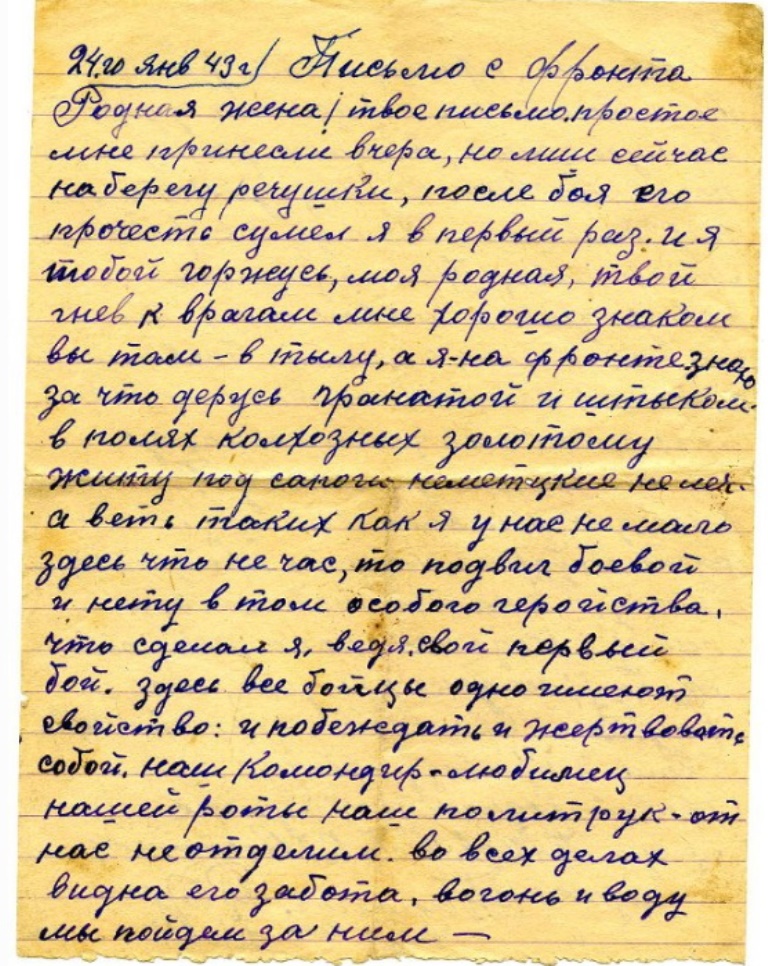 24го янв 43 г/ Письмо с фронта
Родная жена! твое письмо. простое
мне принесли вчера, но лиш сейчас
на берегу речушки, после боя его
прочесть сумел я в первый раз. и я
тобой горжусь, моя родная, твой
гнев к врагам мне хорошо знаком
вы там - в тылу, а я-на фронте знаю
за что дерусь гранатой и штыком.
в полях колхозных золотому
житу под сапоги неметцкие не леч.
а веть таких как я у нас не мало
здесь что не час, то подвиг боевой
и нету в том особого геройства,
что сделал я, ведя. свой первый
бой. здесь все бойцы одно имеют
свойство: и побеждать и жертвовать
собой. наш командир - любимец
нашей роты наш политрук - от
нас не отделим. во всех делах
видна его забота, вогонь и воду
мы пойдем за ним —